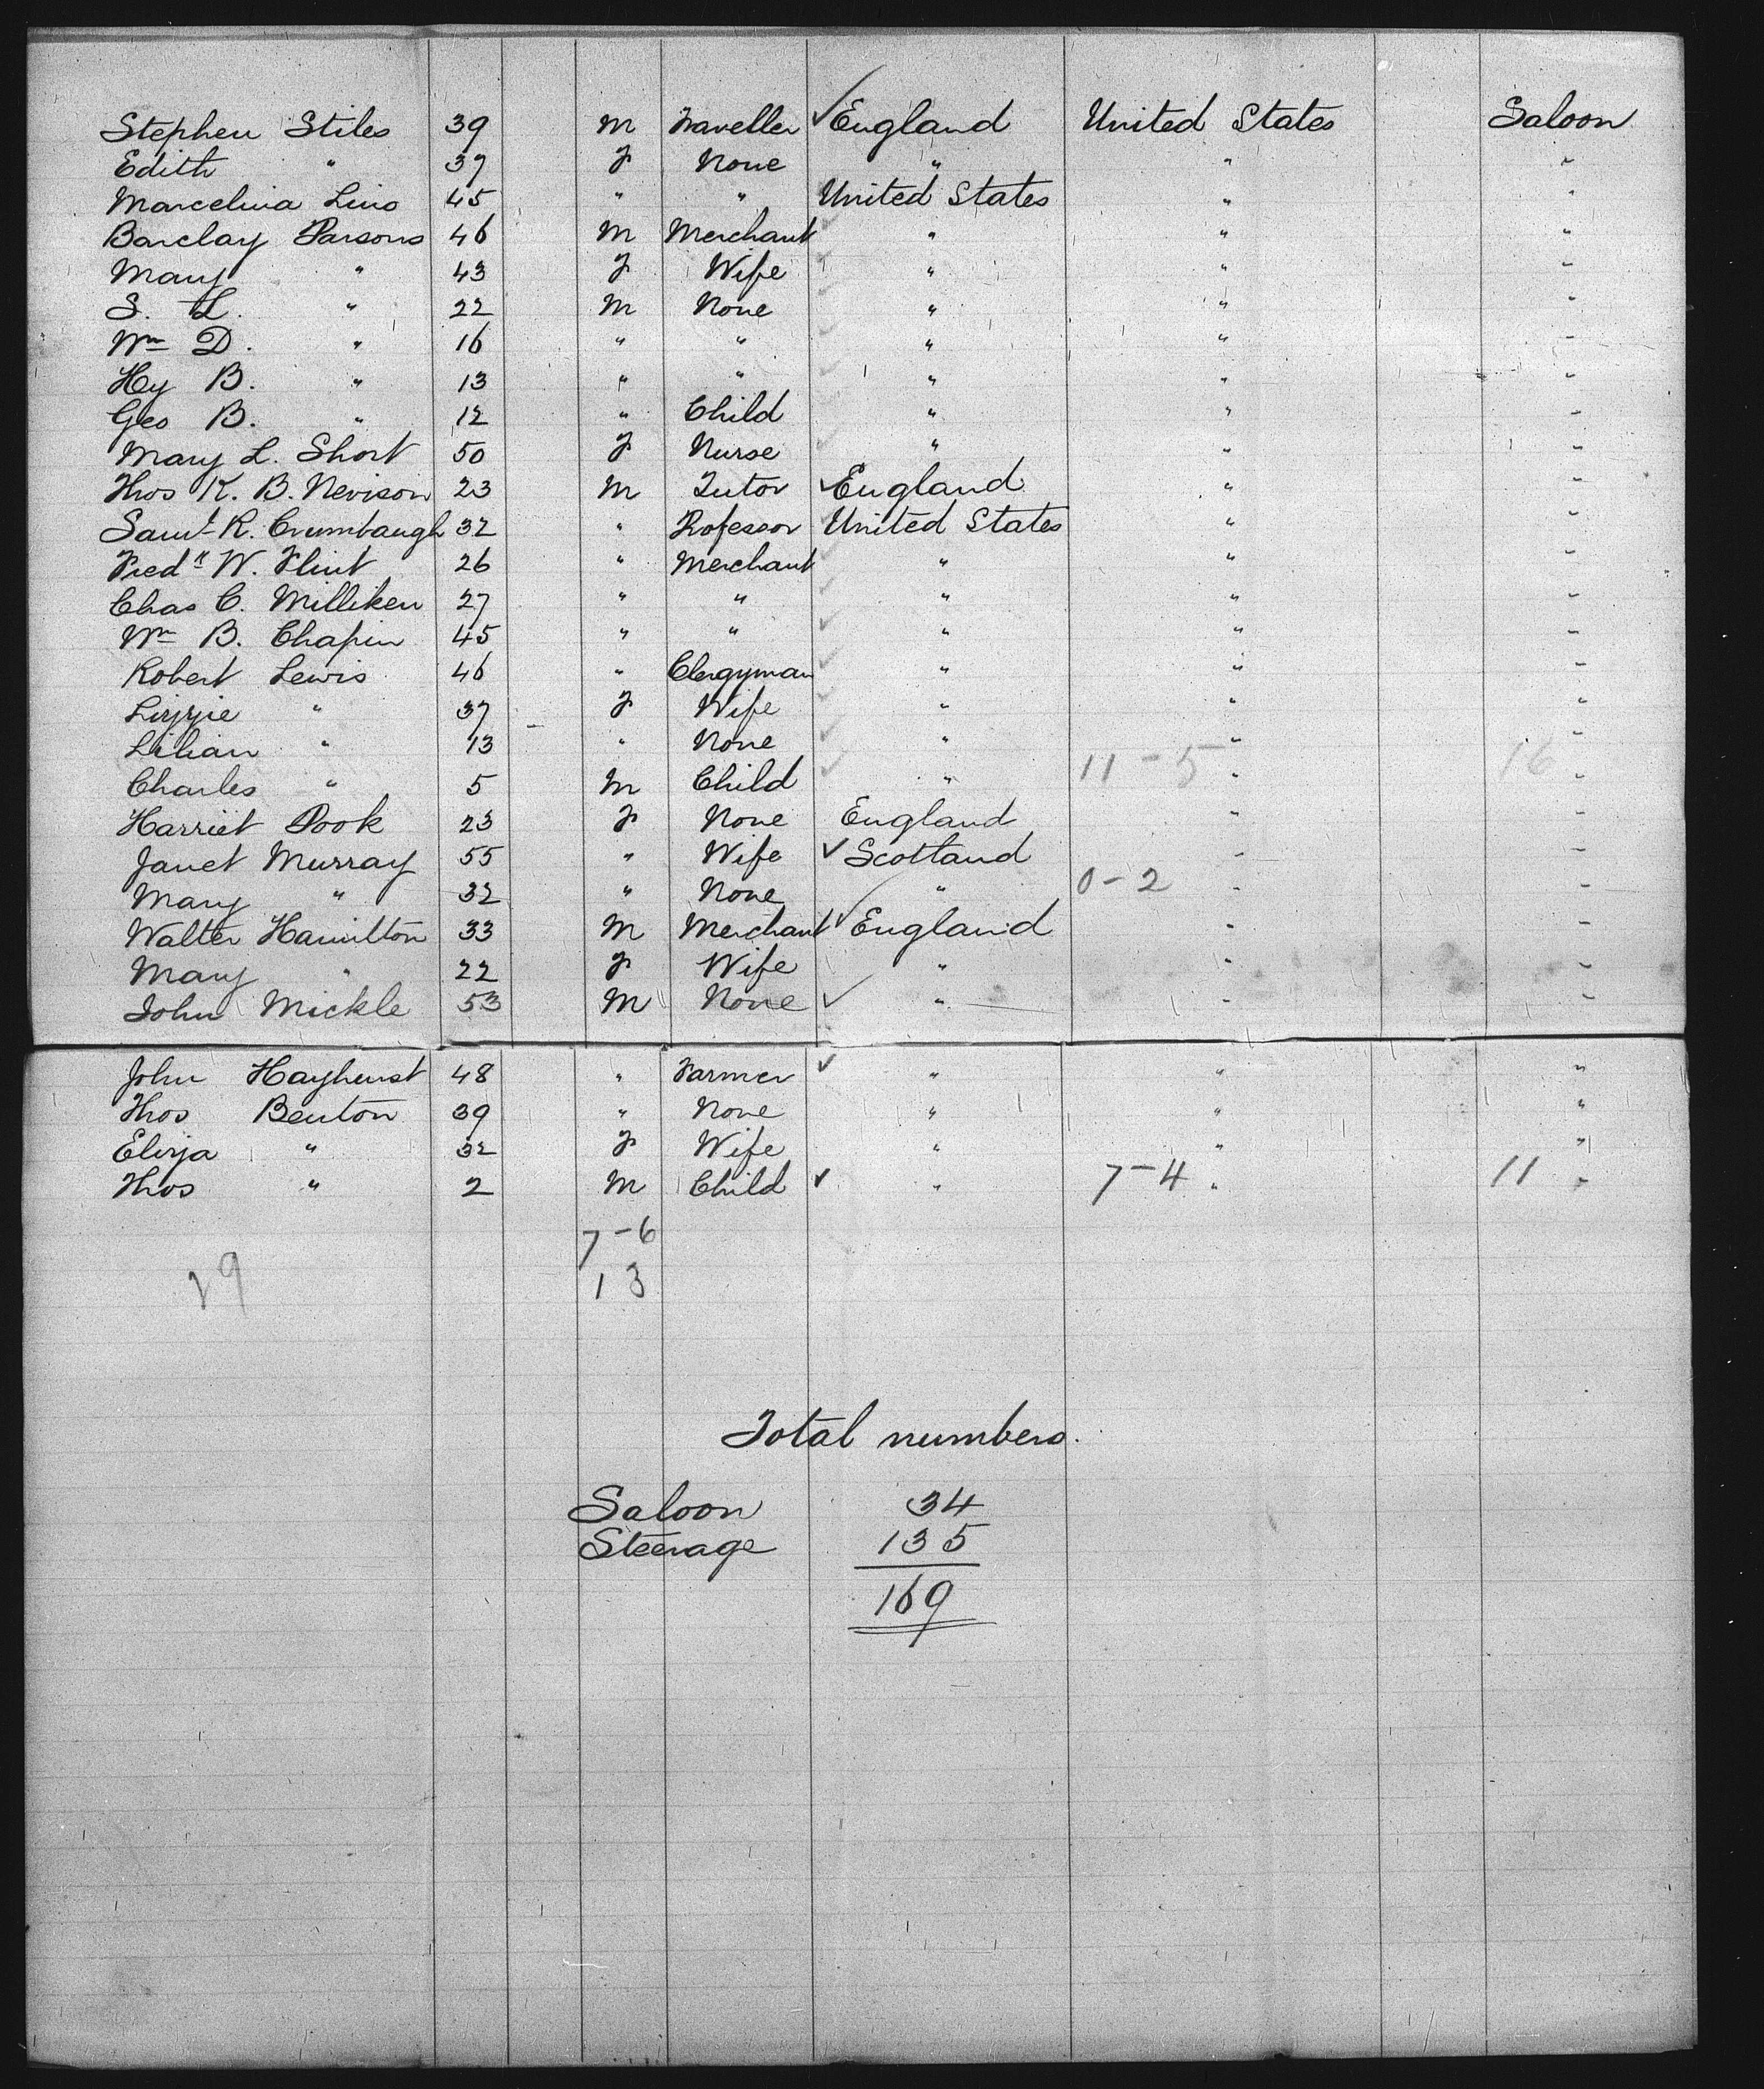 Stephen Stiles 39 M Traveller ✓ England United States Saloon
Edith " 37 F None " " "
Marcelina Lino 45 " " United States " "
Barclay Parsons 46 M Merchant " " "
Mary " 43 F Wife " " "
S. L. " 22 M None " " "
Wm D. " 16 " " " " "
Hy B. " 13 " " " " "
Geo B. " 12 " Child " " "
Mary L. Short 50 F Nurse " " "
Thos K. B. Nevison 23 M Tutor ✓ England " "
Saml R. Crumbaugh 32 " Professor United States " "
Fredk W. Flint 26 " Merchant " " "
Chas C. Milliken 27 " " " " "
Wm B. Chapin 45 " " " " "
Robert Lewis 46 " Clergyman " " "
Lizzie " 37 F Wife " " "
Lilian " 13 " None " " "
Charles " 5 M Child " 11-5 " 16 "
Harriet Pook 23 F None England " "
Janet Murray 55 " Wife ✓ Scotland " "
Mary " 32 " None " 0-2 " "
Walter Hamilton 33 M Merchant ✓ England " "
Mary " 22 F Wife " " "
John Mickle 53 M None ✓ " " "
John Hayhurst 48 " Farmer ✓ " " "
Thos Benton 39 " None " " "
Eliza " 32 F Wife " " "
Thos " 2 M Child ✓ " 7-4 " 11 "
7-6
29 13
Total numbers.
Saloon 34
Steerage 135
169